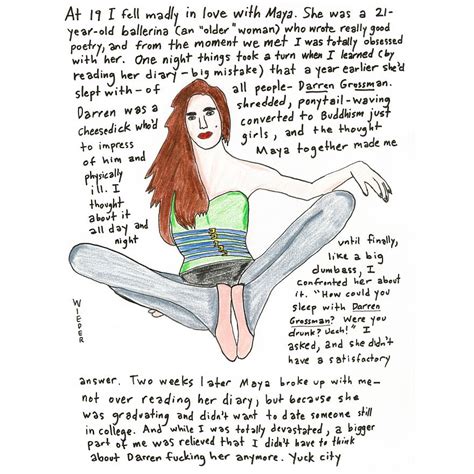 At 19 I fell madly in love with Maya. She was a 21-
year-old ballerina (an "older" woman) who wrote really good
poetry, and from the moment we met I was totally obsessed
with her. One night things took a turn when I learned (by
reading her diary - big mistake) that a year earlier she'd
slept with - of all people - Darren Grossman.
Darren was a shredded, ponytail-waving
cheesedick who'd converted to Buddhism just
to impress girls, and the thought
of him and Maya together made me
physically
ill. I
thought
about it
all day and
night
until finally,
like a big
dumbass, I
confronted her about
it. "How could you
sleep with Darren
Grossman? Were you
drunk? Uch!" I
asked, and she didn't
have a satisfactory
WIEDER
answer. Two weeks later Maya broke up with me—
not over reading her diary, but because she
was graduating and didn't want to date someone still
in college. And while I was totally devastated, a bigger
part of me was relieved that I didn't have to think
about Darren fucking her anymore. Yuck city